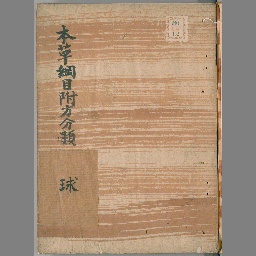 本草綱目附方分類
球